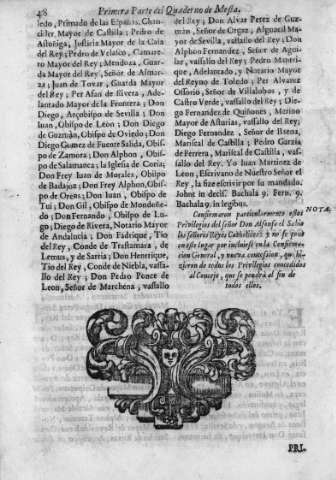 48 Primera Parte del Quaderno de Mesta.
ledo, Primado de las Españas, Chan-
ciller Mayor de Castilla; Pedro de
Astuñiga, Justicia Mayor de la Casa
del Rey; Pedro de Velasco, Camare-
ro Mayor del Rey; Mendoza, Guarda
Mayor del Rey, Señor de Almar-
za; Juan de Tovar, Guarda Mayor
del Rey; Per Afan de Rivera, Ade-
lantado Mayor de la Frontera; Don
Diego, Arçobispo de Sevilla; Don
Iuan, Obispo de Leon; Don Diego
de Guzmàn, Obispo de Oviedo; Don
Diego Gomez de Fuente Salida, Obis-
po de Zamora; Don Alphon, Obis-
po de Salamanca; la Iglesia de Coria;
Don Frey Iuan de Morales, Obispo
de Badajoz; Don Frey Alphon, Obis-
po de Orens; Don Iuan, Obispo de
Tui; Don Gil, Obispo de Mondoñe-
do; Don Fernando, Obispo de Lu-
go; Diego de Rivera, Notario Mayor
de Andalucia; Don Fadrique, Tio
del Rey, Conde de Trastamara, de
Lemus, y de Sarria; Don Henrique,
Tio del Rey, Conde de Niebla, vassa-
llo del Rey; Don Pedro Ponce de
Leon, Señor de Marchena, vassallo
del Rey; Don Alvar Perez de Guz-
màn, Señor de Orgaz, Alguacil Ma-
yor de Sevilla, vassallo del Rey; Don
Alphon Fernandez, Señor de Agui-
lar, vassallo del Rey; Pedro Manri-
que, Adelantado, y Notario Mayor
del Reyno de Toledo; Per Alvarez
Ossorio, Señor de Villalobos, y de
Castro Verde, vassallo del Rey; Die-
go Fernandez de Quiñones, Merino
Mayor de Asturias, vassallo del Rey;
Diego Fernandez, Señor de Baena,
Mariscal de Castilla; Pedro Garzia
de Ferrera, Mariscal de Castilla, vas-
sallo del Rey. Yo Juan Martinez de
Leon, Escrivano de Nuestro Señor el
Rey, la fize escrivir por su mandado.
Bachala 9. Fern. 9.
Bachala 9. in legibus.
Confirmaron particularmente estos
Privilegios del señor Don Alfonso el Sabio
los señores Reyes Catholicos: y no se pone
en este lugar por incluirse en la Confirma-
cion General, y nueva concession, que hi-
zieron de todos los Privilegios concedidos
al Concejo, que se pondrà al fin de
todos ellos.
NOTA.
PRI-